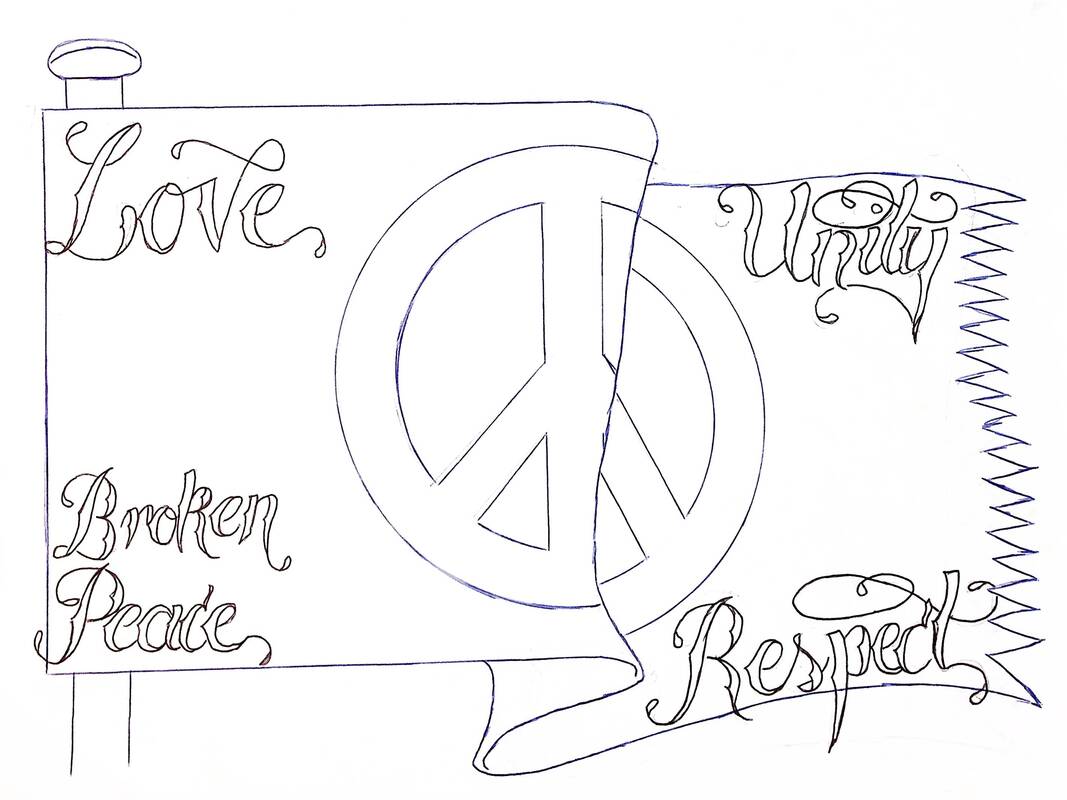 Love
Unity
Broken
Peace
Respect